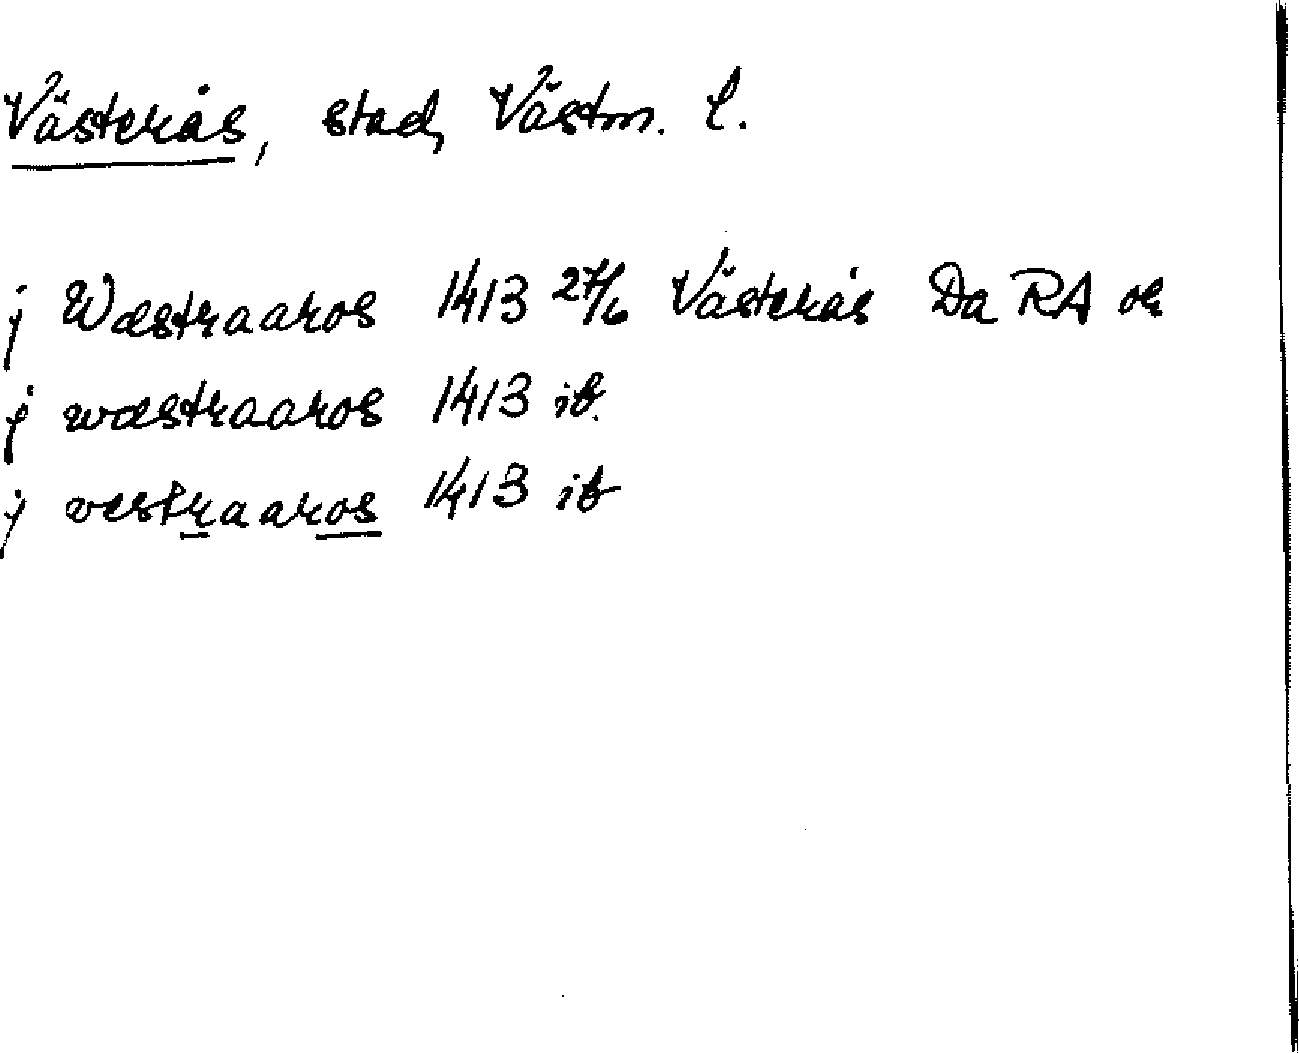 Västerås, stad, Västm. l.
j Wæstraaros 1413 27/6 Västerås Da RA or
j wæstraaros 1413 ib.
j vestraaros 1413 ib